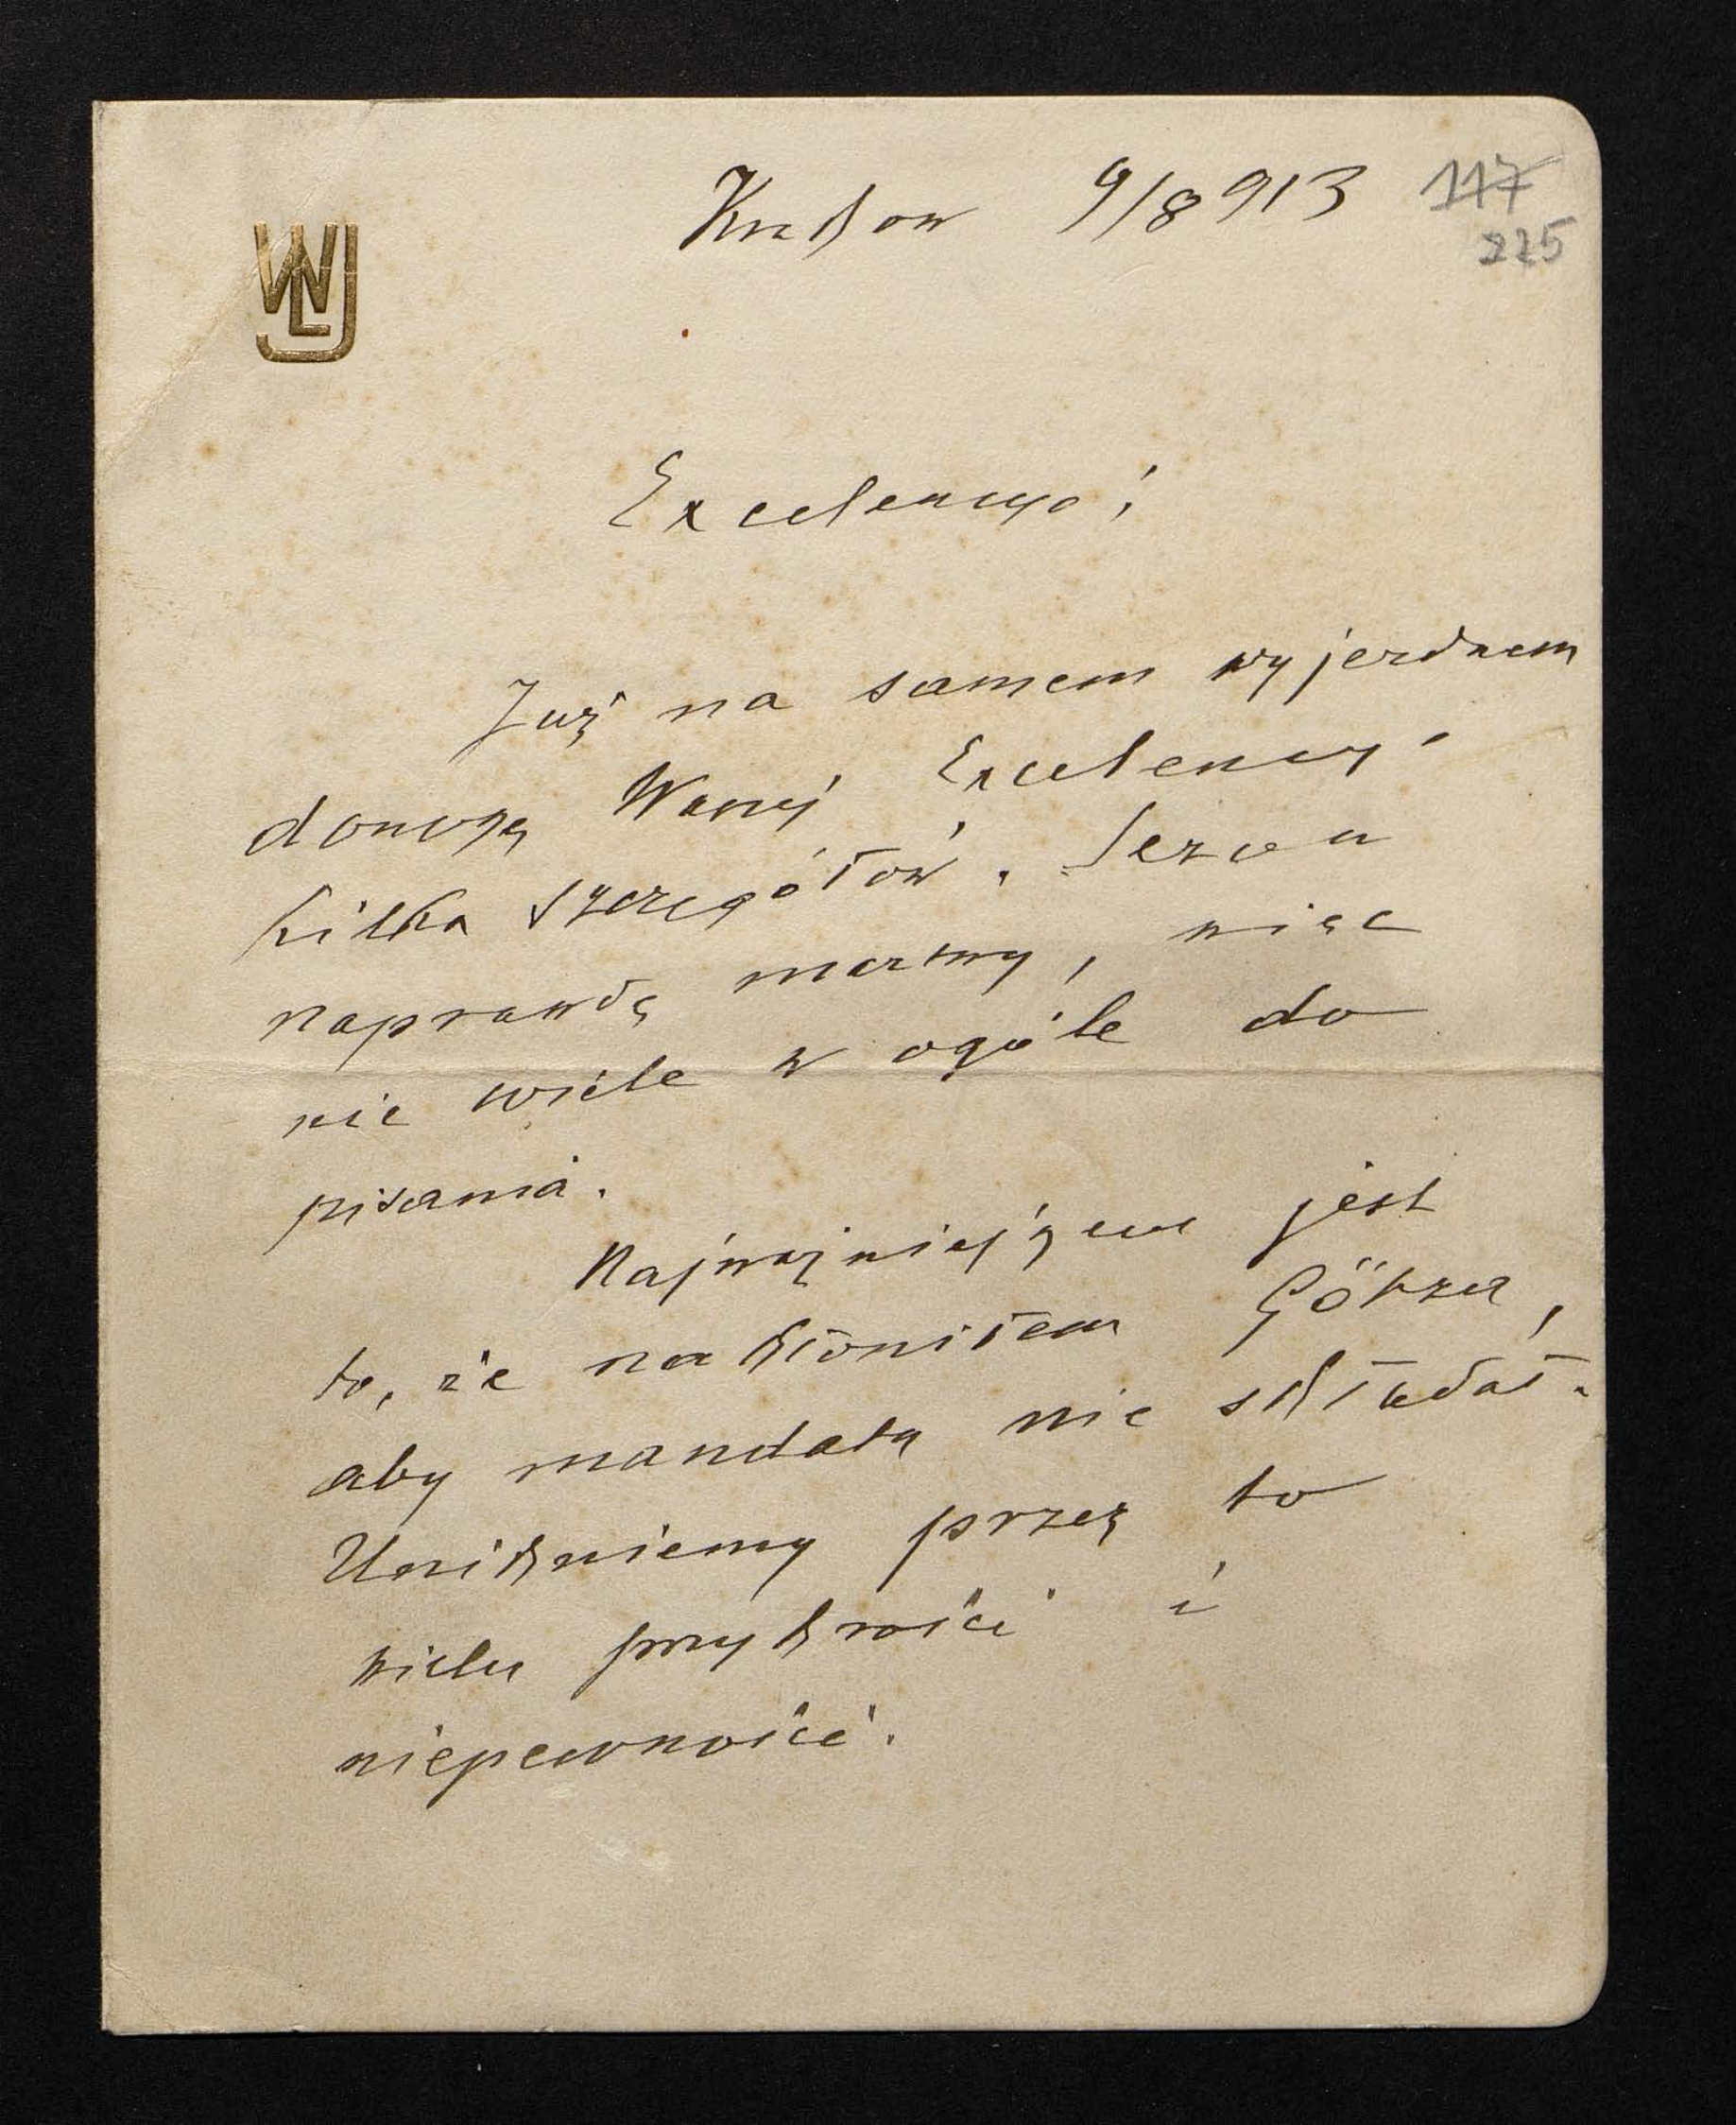 Kraków 9/8 913
117
225
WLJ
Excelencyo!
Już na samem wyjezdnem
donoszę Waszej Excelencyi
kilka szczegółów. Sezon
naprawdę martwy, więc
nie wiele w ogóle do
pisania.
Najważniejszem jest
to, że nakłoniłem Götza,
aby mandatu nie składał.
Unikniemy przez to
wielu przykrości i
niepewności.